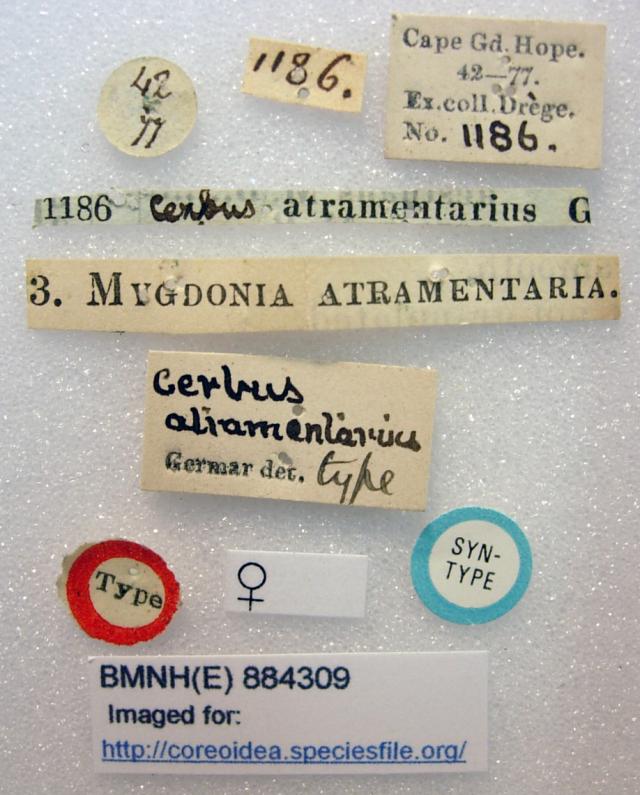 42
77
1186.
Cape Gd. Hope.
42—77.
Ex. coll. Drège.
No. 1186.
1186 Cerbus atramentarius G
3. MYGDONIA ATRAMENTARIA.
Cerbus
atramentarius
Germar det. type
Type
♀
SYN-
TYPE
BMNH(E) 884309
Imaged for:
http://coreoidea.speciesfile.org/